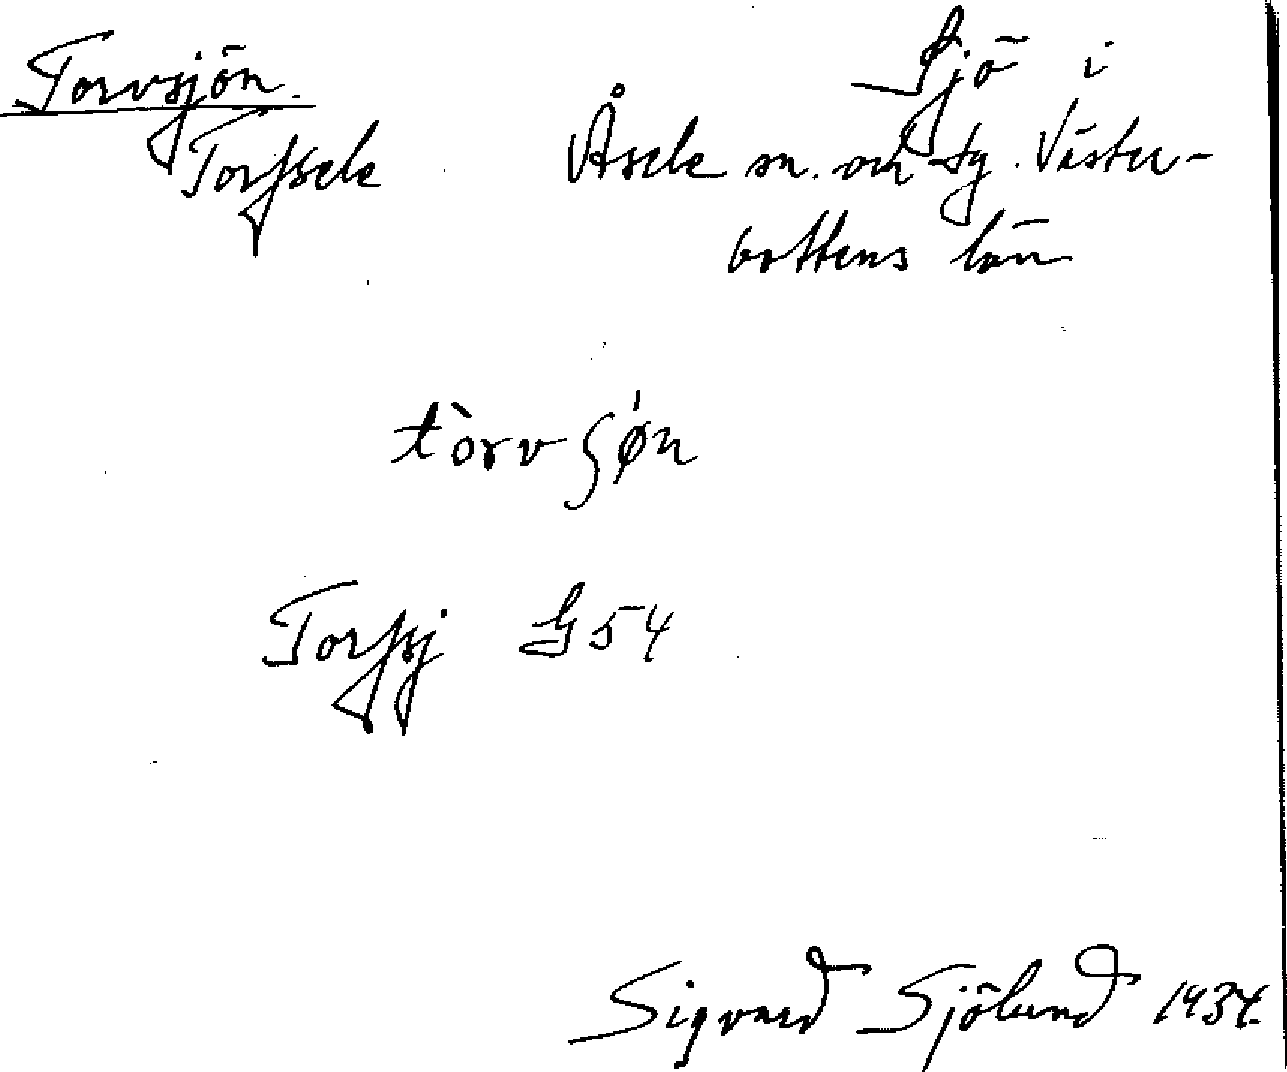 Torvsjön. Sjö i
Torfsele Åsele sn. och tg. Väster-
bottens län
tòrvʃǿn
Torfsj G54
Sigvard Sjölund 1934.